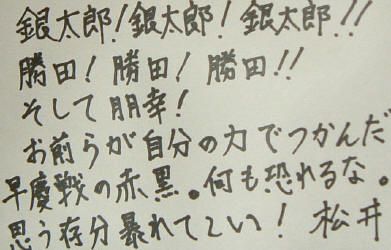 銀太郎!銀太郎!銀太郎!!
勝田!勝田!勝田!!
そして朋幸!
お前らが自分の力でつかんだ
早慶戦の赤黒。何も恐れるな。
思う存分暴れてこい! 松井